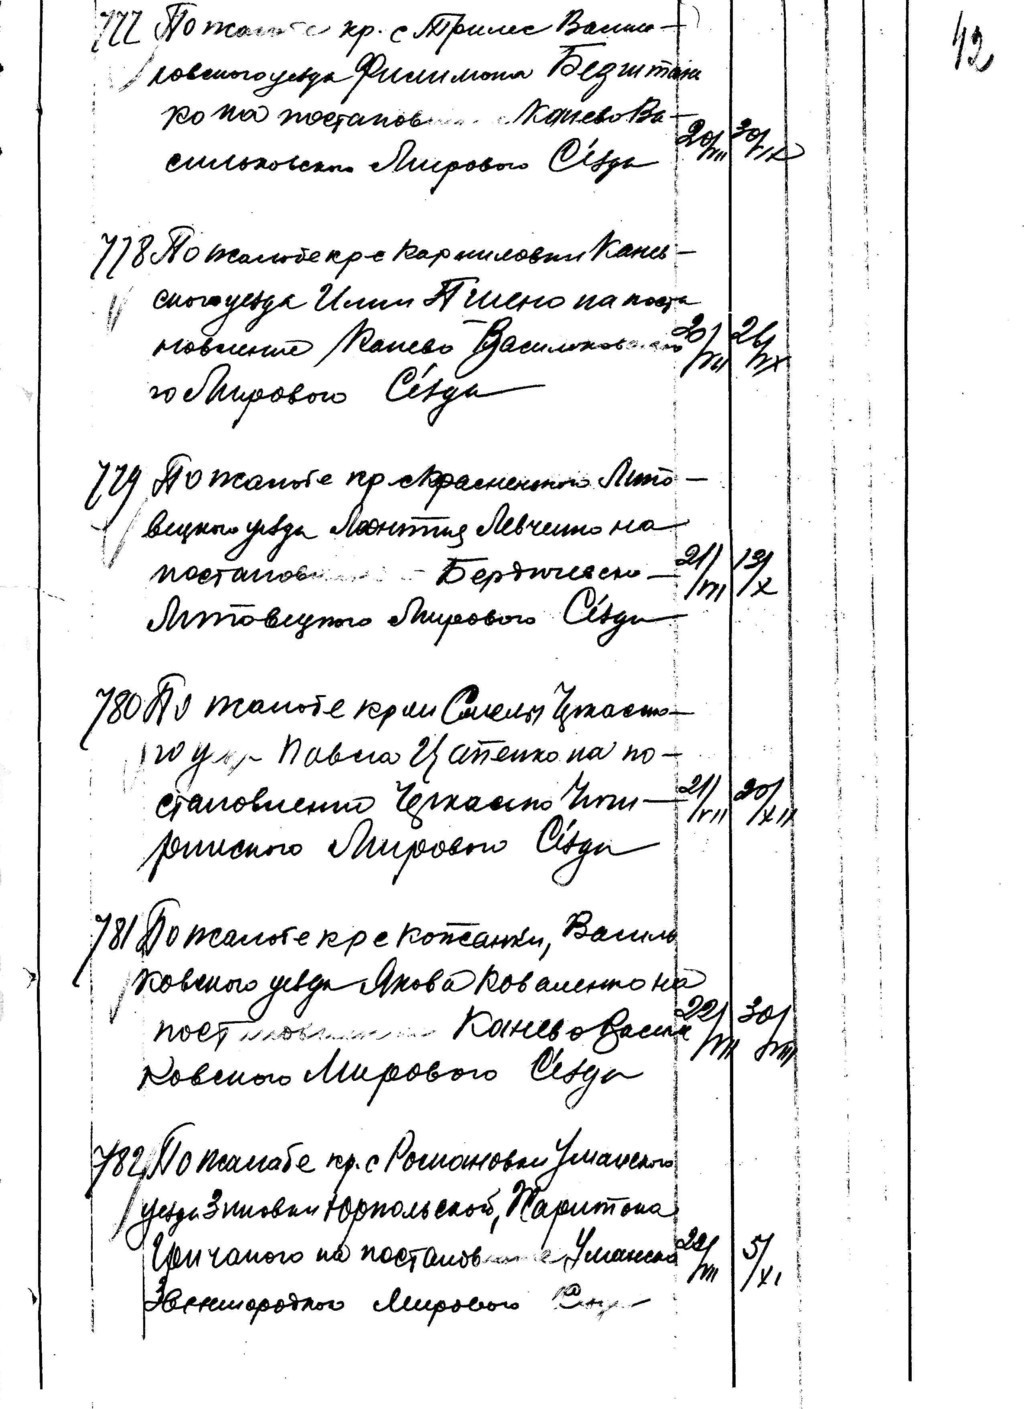 42
777 По жалобе кр. с Трилес Василь-
ковского уезда Филимона Безштань
ко на постанов Канево Ва-
сильковского Мирового Съезда 20/VII 30/IX
778 По жалобе кр с Карпиловки Канев-
ского уезда Илии Пшено на поста
новление Канево Васильковско 20/VII 26/IX
го Мирового Съезда
779 По жалобе кр с Красненького Липо-
вецкого уезда Леонтия Левченко на
постанов Бердическо- 21/VII 19/X
Липовецкого Мирового Съезда
780 По жалобе кр м Смелы Черкасско-
го у Павла Цапенко на по-
становление Черкасско Чиги- 21/VII 20/XII
ринского Мирового Съезда
781 По жалобе кр с Кожанки, Василь
ковского уезда Якова Коваленко на
постановление Канево Василь 22/VII 30/VIII
ковского Мирового Съезда
782 По жалабе кр. с Романовки Уманского
уезда Зиновии Юрпольской, Харитона
на постанов Уманско 22/VII 5/XI
Звенигородкого Мирового Съезда